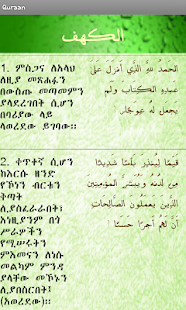 Quraan
الكهف
1. ምስጋና ለአላህ
ለዚያ መጽሐፉን
በውስጡ መጣመምን
ያላደረገበት ሲሆን
በባሪያው ላይ
ላወረደው ይገባው፡፡
الحمد لله الذي أنزل على
عبده الكتاب ولم
يجعل له عوجا
2. ቀጥተኛ ሲሆን
ከእርሱ ዘንድ
የኾነን ብርቱን
ቅጣት
ሊያስፈራራበት፣
እነዚያንም በጎ
ሥራዎችን
የሚሠሩትን
ምእመናን ለነሱ
መልካም ምንዳ
ያላቸው መኾኑን
ሊያበስርበት፣
(አወረደው)፡፡
قيما لينذر بأسا شديدا
من لدنه ويبشر المؤمنين
الذين يعملون الصالحات
أن لهم أجرا حسنا